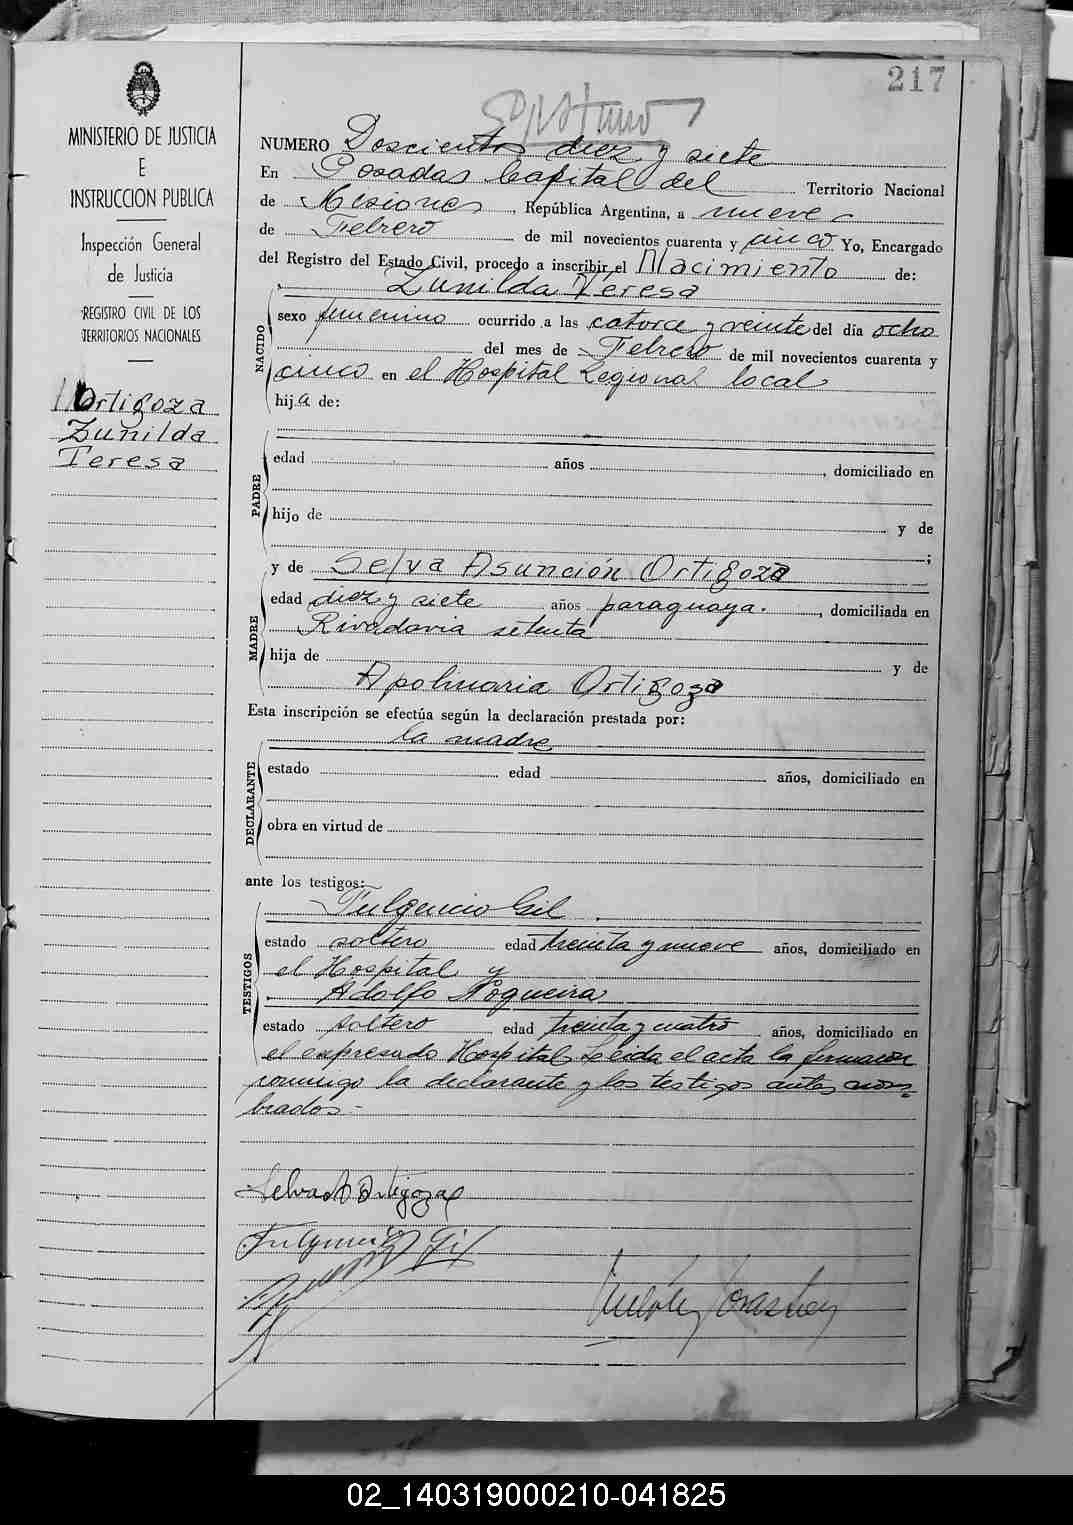 217
MINISTERIO DE JUSTICIA
E
INSTRUCCION PUBLICA
Inspección General
de Justicia
REGISTRO CIVIL DE LOS
TERRITORIOS NACIONALES
Ortigoza
Zunilda
Teresa
NUMERO Doscientos diez y siete
En Posadas Capital del Territorio Nacional
de Misiones, República Argentina, a nueve
de Febrero de mil novecientos cuarenta y cinco Yo, Encargado
del Registro del Estado Civil, procedo a inscribir el Nacimiento de:
Zunilda Teresa
NACIDO
sexo femenino ocurrido a las catorce y veinte del día ocho
del mes de Febrero de mil novecientos cuarenta y
cinco en el Hospital Regional local
hija de:
PADRE
edad años , domiciliado en
hijo de y de
;
y de Selva Asunción Ortigoza
MADRE
edad diez y siete años paraguaya. , domiciliada en
Rivadavia setenta
hija de y de
Apolinaria Ortigoza
Esta inscripción se efectúa según la declaración prestada por:
la madre
DECLARANTE
estado edad años, domiciliado en
obra en virtud de
ante los testigos:
Fulgencio Gil
TESTIGOS
estado soltero edad treinta y nueve años, domiciliado en
el Hospital y
Adolfo Nogueira
estado soltero edad treinta y cuatro años, domiciliado en
el expresado Hospital Leida el acta la firmaron
conmigo la declarante y los testigos antes nom-
brados.-
Selva A Ortigoza
Fulgencio Gil
02_140319000210-041825